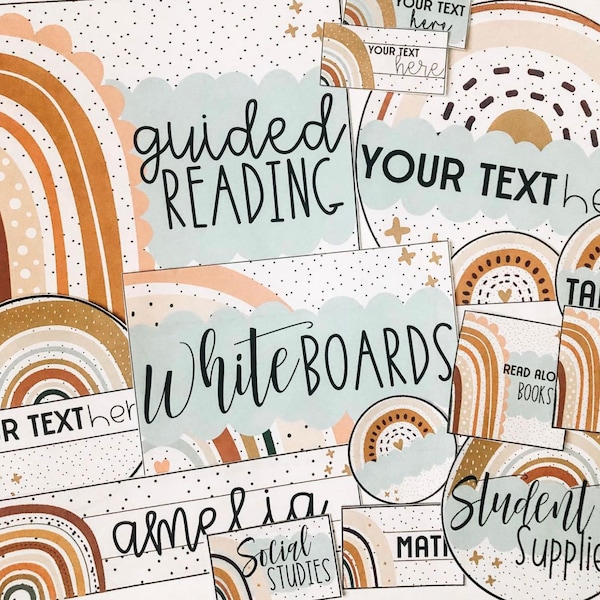 YOUR TEXT
here
YOUR TEXT
here
guided
READING
YOUR TEXT
WhiteBOARDS
READ ALO
BOOKS
R TEXT here
amelia
Social
STUDIES
MATH
Student
Supplie